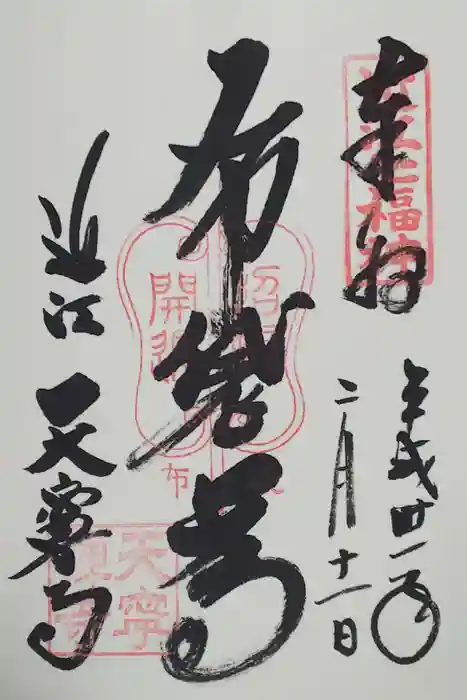 奉拝
近江七福神
平成廿一年
二月十一日
布袋尊
開運
布
近江 天寧寺
天寧